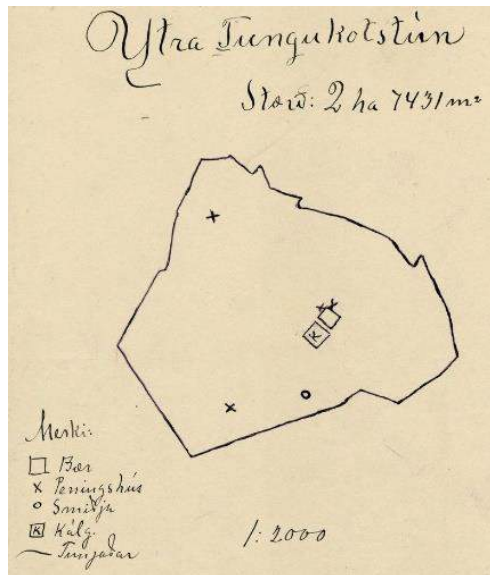 Ytra Tungukotstún
Stærð: 2 ha 7431 m²
K
Merki:
Bær
x Peningshús
o Smiðja
K Kálg.
Túnjaðar
1:2000